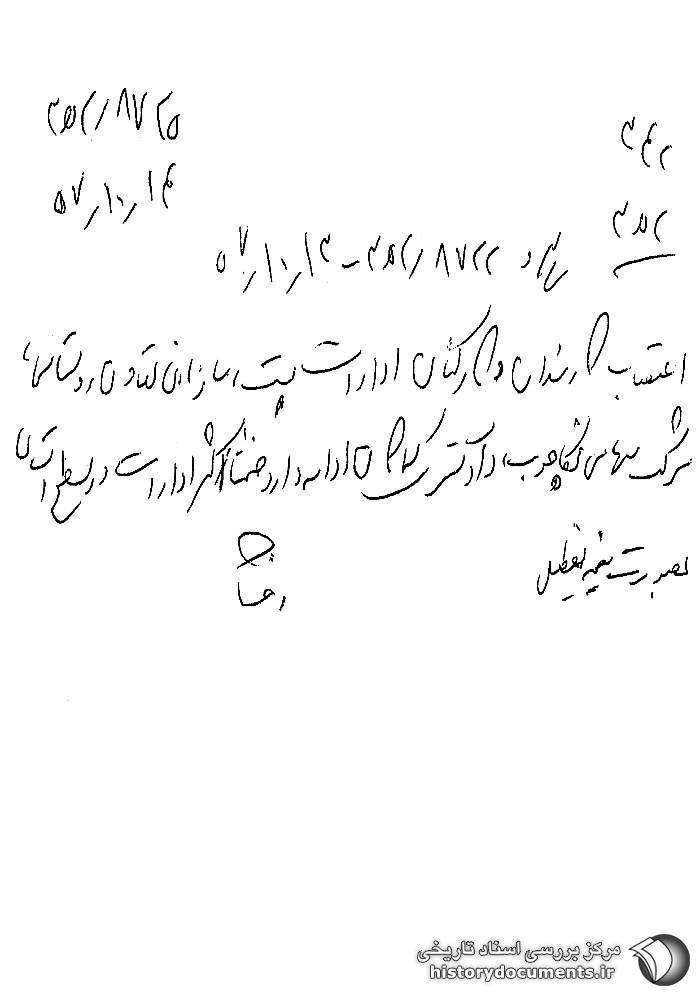 ۳۵۲/۸۷۲۵
۳۴۲
۵۷/۱۰/۱۴
۳۵۲
پیرو ۳۵۲/۸۷۲۲ - ۵۷/۱۰/۱۳
اعتصاب کارمندان و کارکنان ادارات پست، سازمان تعاون روستاها،
شرکت سهامی نکاچوب، دادگستری کماکان ادامه دارد ضمناً اکثر ادارات در سطح استان
بصورت نیمه تعطیل
مرکز بررسی اسناد تاریخی
historydocuments.ir